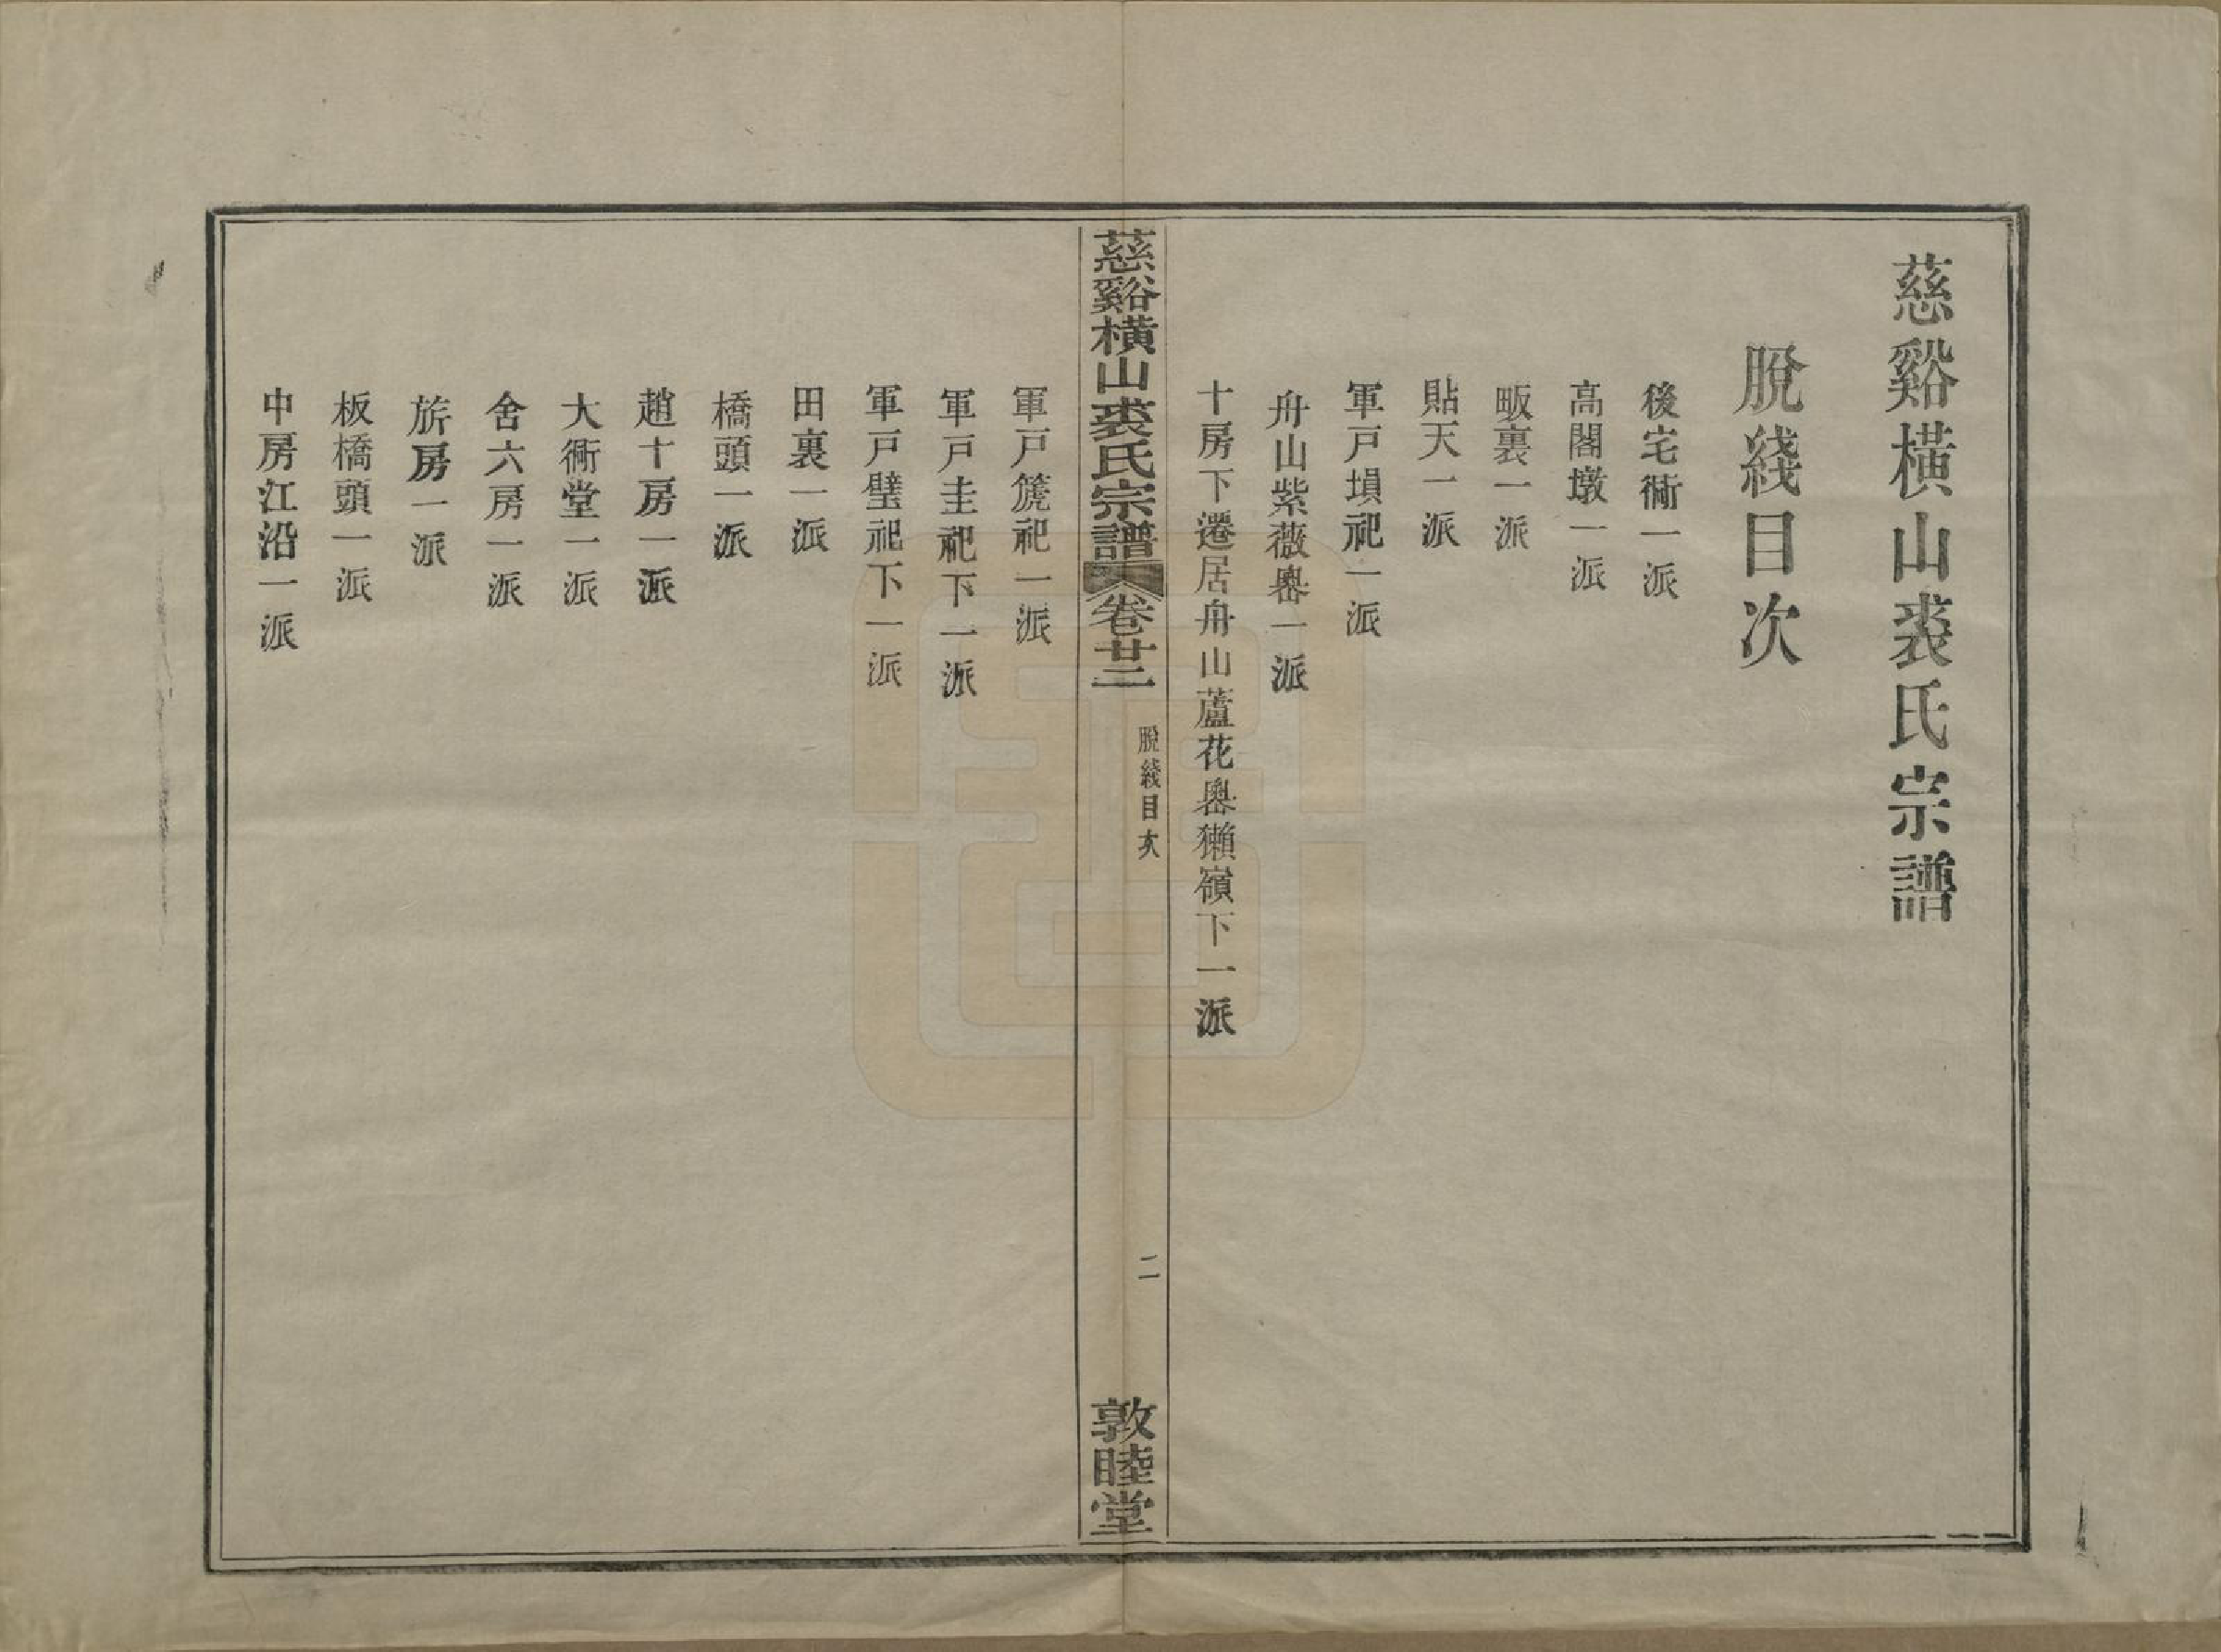 慈谿橫山裘氏宗譜
脫綫目次
後宅衕一派
高閣墩一派
畈裏一派
貼天一派
軍戶塤祀一派
舟山紫薇嶴一派
十房下遷居舟山蘆花嶴獺嶺下一派
慈谿橫山裘氏宗譜
卷廿二
脫綫目次
二
敦睦堂
軍戶篪祀一派
軍戶圭祀下一派
軍戶璧祀下一派
田裏一派
橋頭一派
趙十房一派
大衕堂一派
舍六房一派
旂房一派
板橋頭一派
中房江沿一派